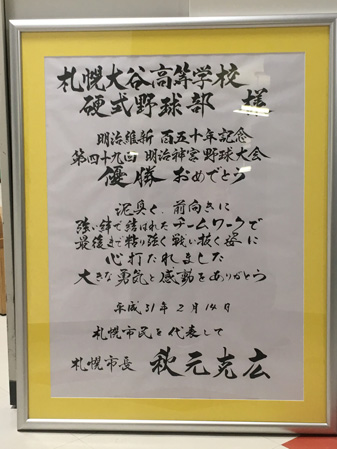 札幌大谷高等学校
硬式野球部 様
明治維新 百五十年記念
第四十九回 明治神宮野球大会
優勝 おめでとう
泥臭く、前向きに
強い絆で結ばれたチームワークで
最後まで粘り強く戦い抜く姿に
心打たれました
大きな勇気と感動をありがとう
平成31年2月14日
札幌市民を代表して
札幌市長 秋元克広